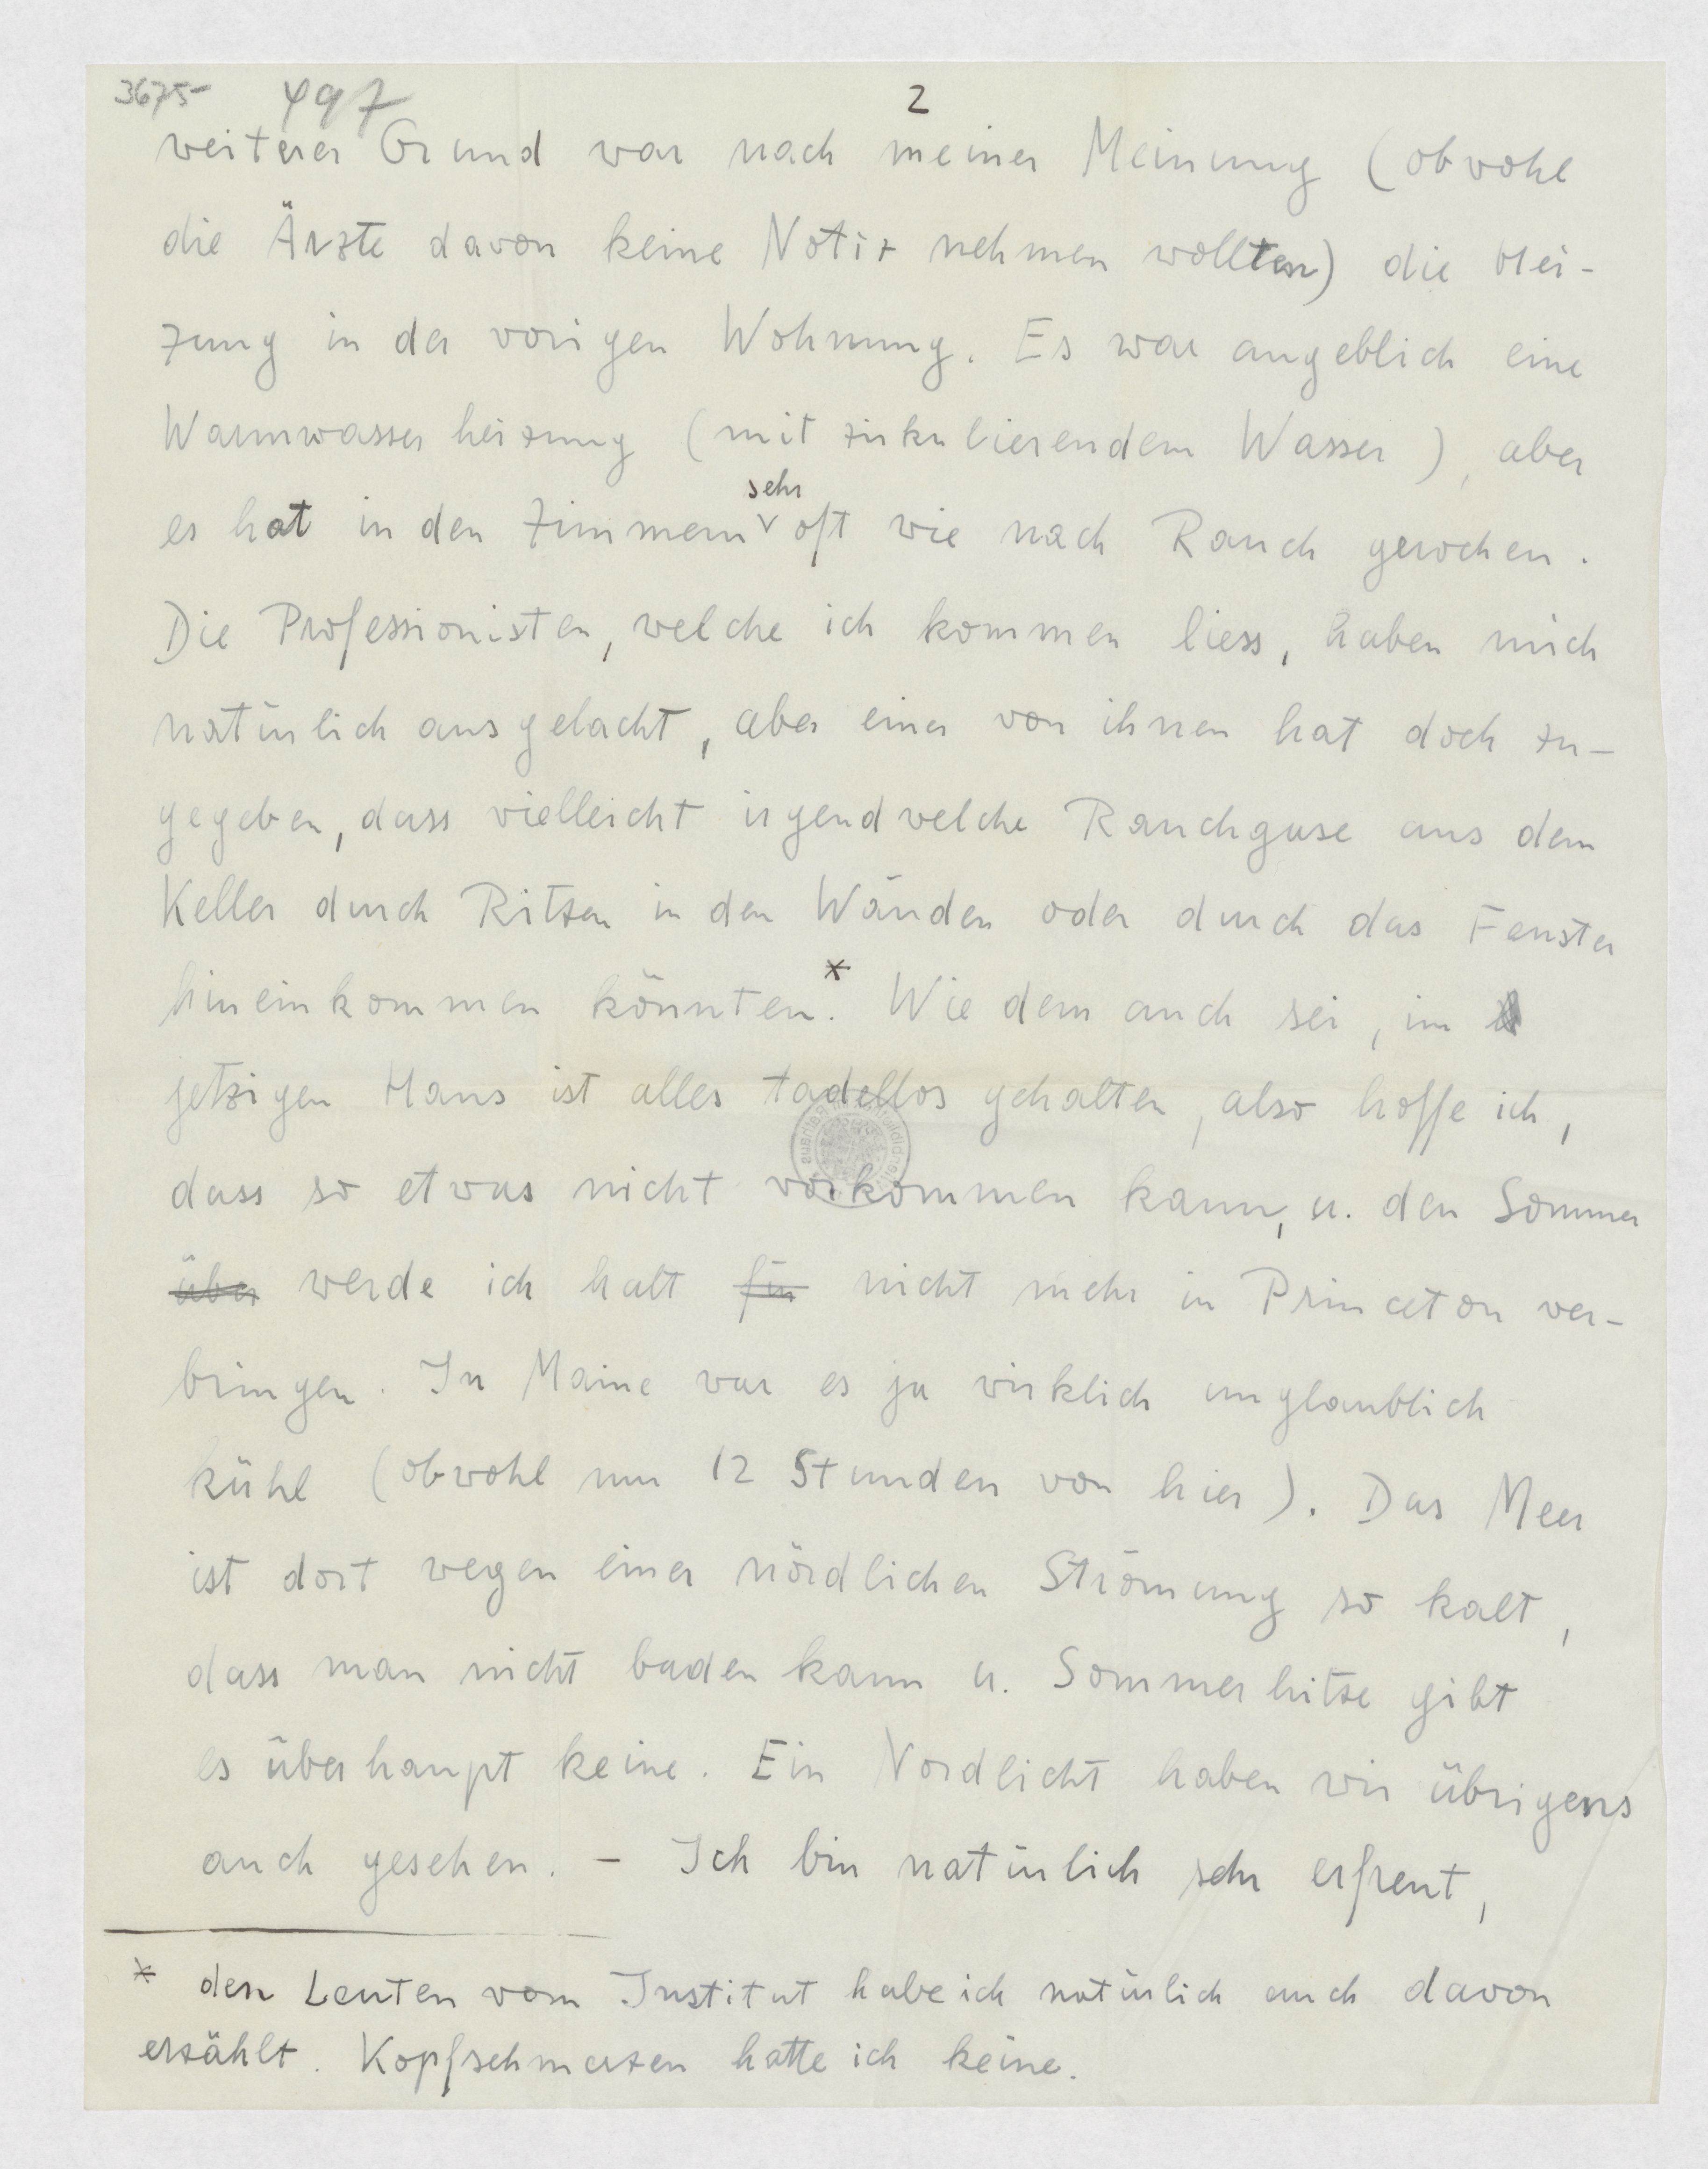 3675- 497 2
weiterer Grund war nach meiner Meinung (obwohl
die Ärzte davon keine Notiz nehmen wollten) die Hei-
zung in der vorigen Wohnung. Es war angeblich eine
Warmwasserheizung (mit zirkulierendem Wasser), aber
sehr
es hat in den Zimmern ˅ oft wie nach Rauch gerochen.
Die Professionisten, welche ich kommen liess, haben mich
natürlich ausgelacht, aber einer von ihnen hat doch zu-
gegeben, dass vielleicht irgendwelche Rauchgase aus dem
Keller durch Ritzen in den Wänden oder durch das Fenster
hineinkommen könnten.* Wie dem auch sei, im
jetzigen Haus ist alles tadellos gehalten, also hoffe ich,
dass so etwas nicht vorkommen kann, u. den Sommer
über werde ich halt für nicht mehr in Princeton ver-
bringen. In Maine war es ja wirklich unglaublich
kühl (obwohl nur 12 Stunden von hier). Das Meer
ist dort wegen einer nördlichen Strömung so kalt,
dass man nicht baden kann u. Sommerhitze gibt
es überhaupt keine. Ein Nordlicht haben wir übrigens
auch gesehen. – Ich bin natürlich sehr erfreut,
* den Leuten vom Institut habe ich natürlich auch davon
erzählt. Kopfschmerzen hatte ich keine.